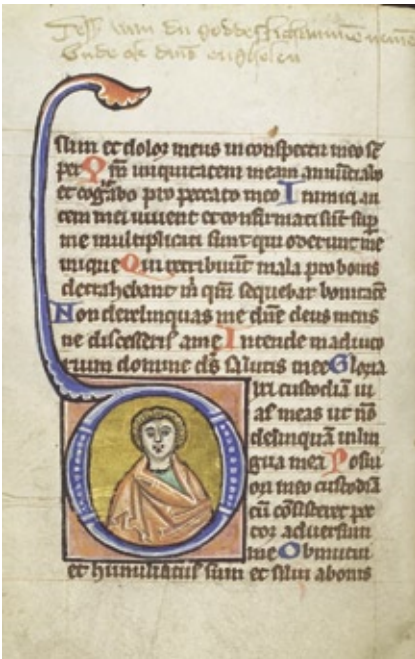 sum et dolor meus in conspectu meo sē
per Qm̄ iniquitatem meam annūciabo
et cogitabo pro peccato meo Inimici au
tem mei vivunt et confirmati sūt sup
me multiplicati sunt qui oderunt me
inique Qui retribuūt mala pro bonis
detrahebant m̄ qm̄ sequebar bonitatē
Non derelinquas me dn̄e deus meus
ne discesseris a me Intende in adiuto
rium domine ds̄ salutis mee Gloria
D ixi custodiā vi
as meas ut nō
delinquā in lin
gua mea Posui
ori meo custodiā
cū cōsisteret pec
tor adversum
me Obmutui
et humiliatus sum et silui a bonis